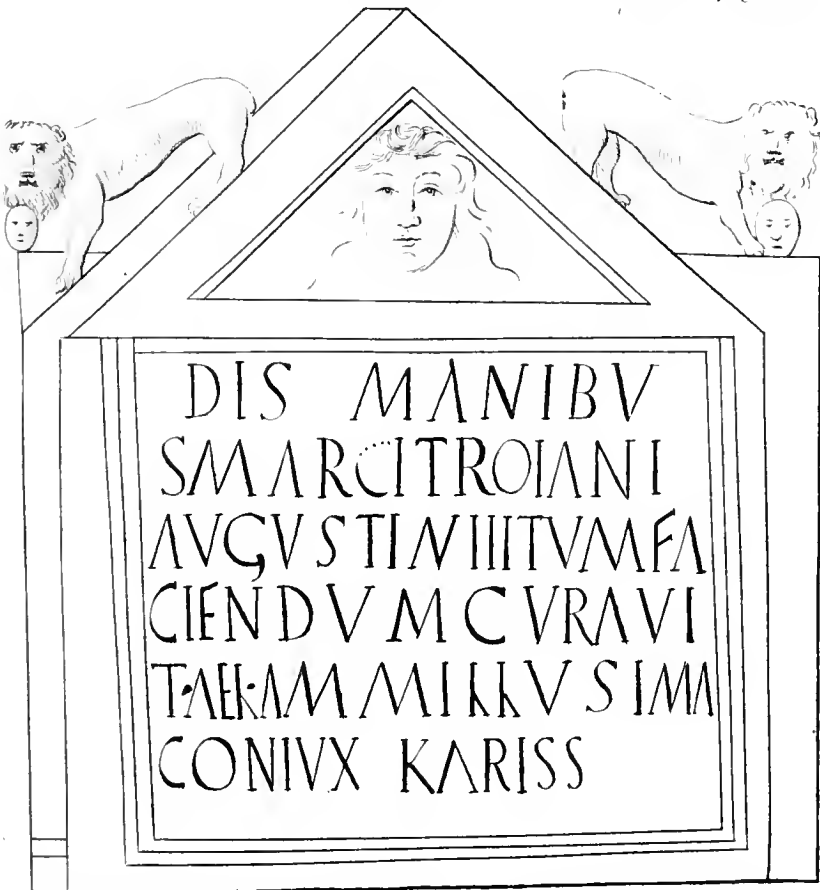 DIS MANIBV
SMARCITROIANI
AVGVSTINIIITVMFA
CIENDVMCVRAVI
T·AEL·AMMILLVSIMA
CONIVX KARISS